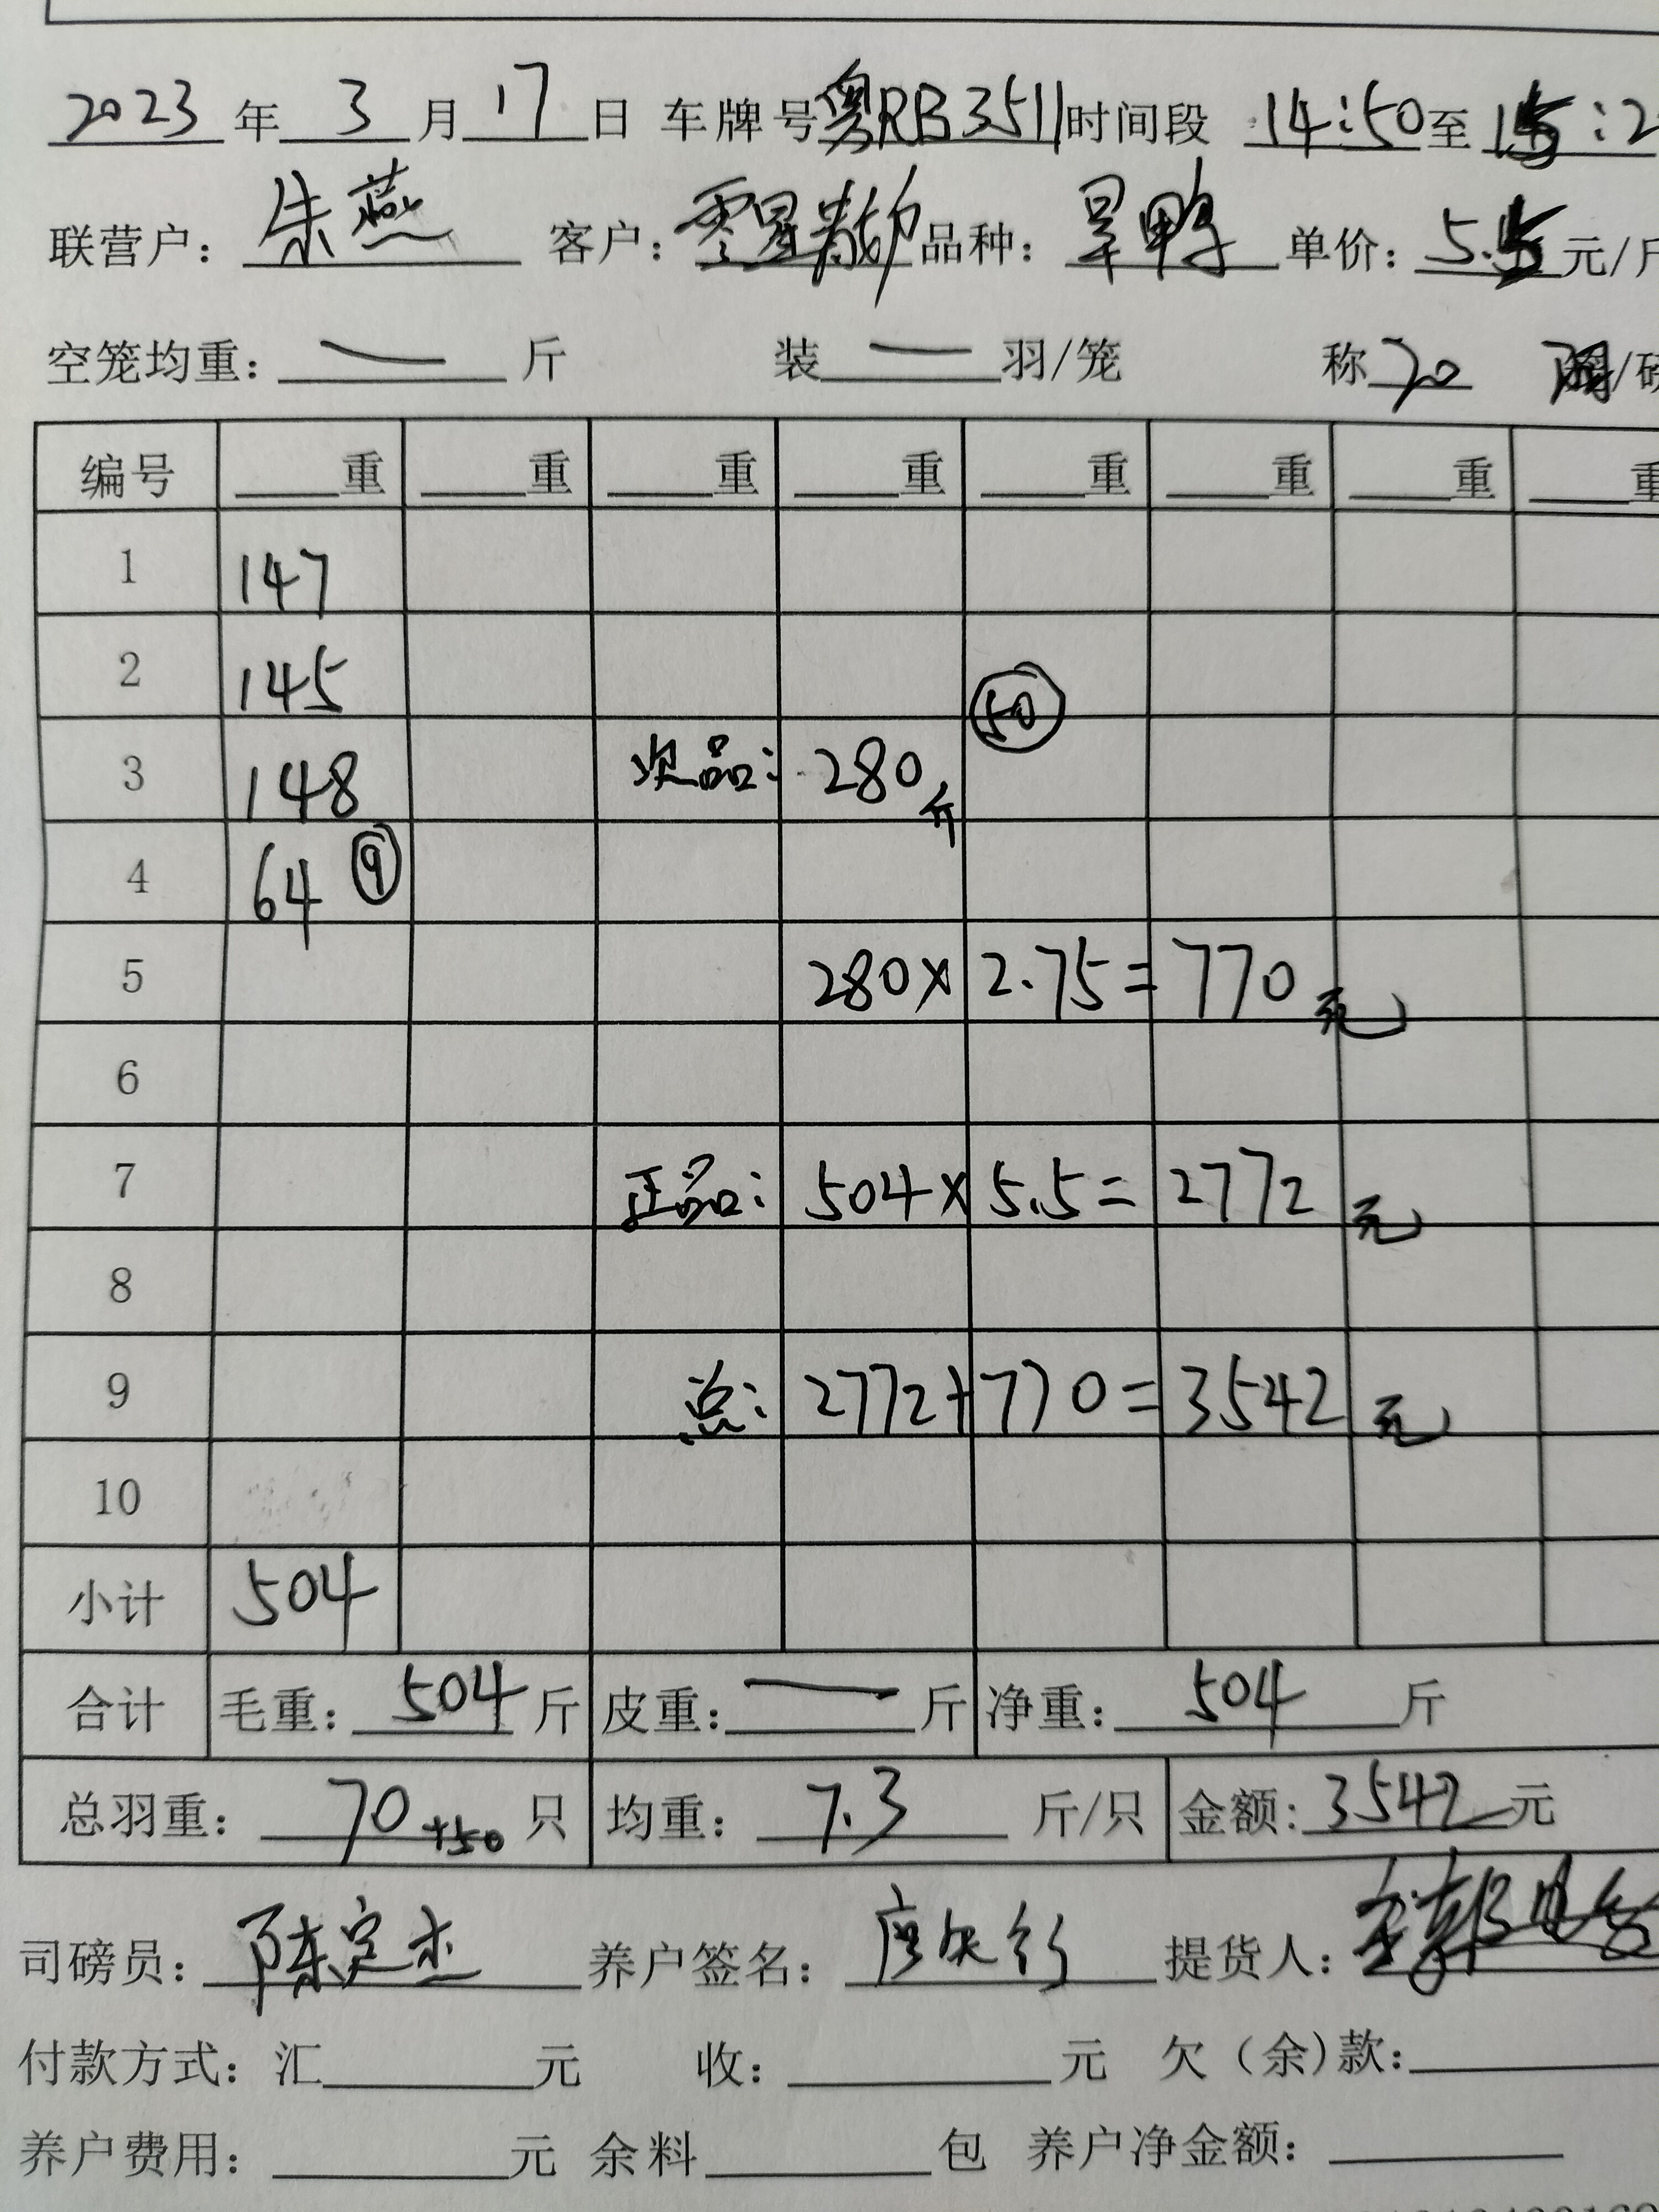 2023年3月17日 车牌号粤RB3511时间段 14:50至15:2
联营户：朱燕 客户：零星散户 品种：旱鸭 单价：5.5元/斤
空笼均重：— 斤 装 — 羽/笼 称 20 /磅
编号 重 重 重 重 重 重 重 重
1 147
2 145 50
3 148 次品：280斤
4 64 9
5 280×2.75=770元
6
7 正品：504×5.5=2772元
8
9 总：2772+770=3542元
10
小计 504
合计 毛重：504斤 皮重：—斤 净重：504斤
总羽重：70+50只 均重：7.3 斤/只 金额：3542元
司磅员：陈定杰 养户签名： 提货人：
付款方式：汇 元 收： 元 欠（余）款：
养户费用： 元 余料 包 养户净金额：